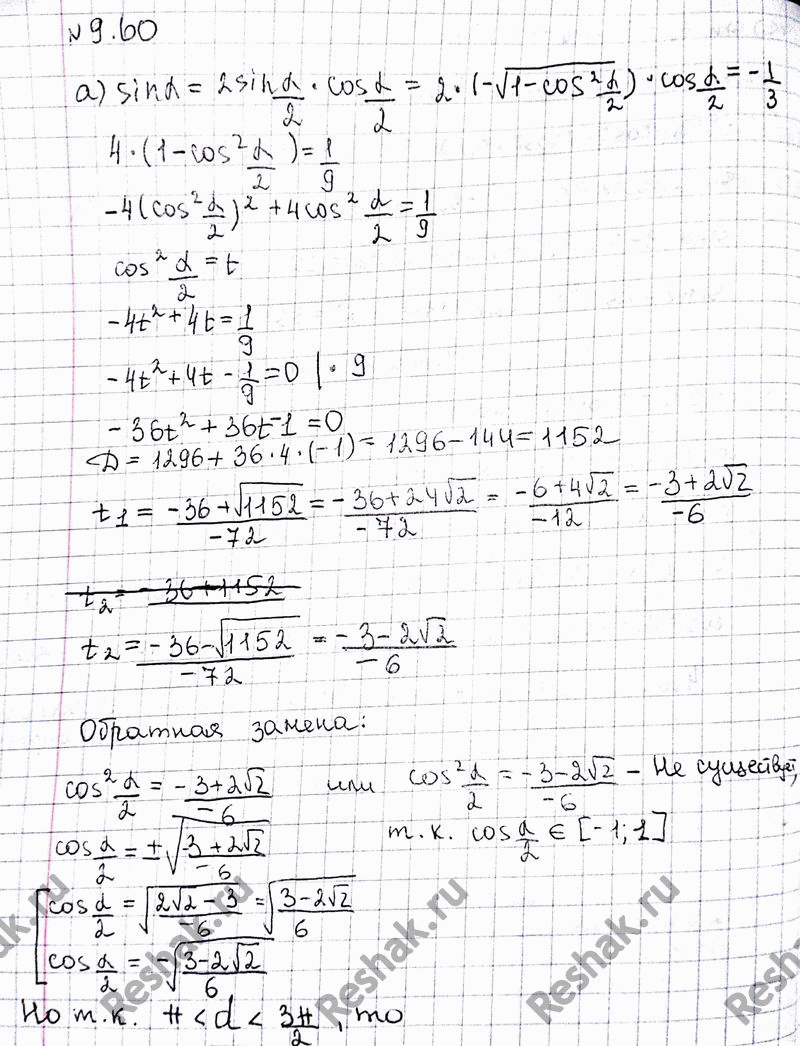 №9.60
а) sinα = 2sin α/2 · cos α/2 = 2 · (-√(1-cos² α/2)) · cos α/2 = -1/3
4 · (1-cos² α/2) = 1/9
-4(cos² α/2)² + 4cos² α/2 = 1/9
cos² α/2 = t
-4t² + 4t = 1/9
-4t² + 4t - 1/9 = 0 | · 9
-36t² + 36t - 1 = 0
D = 1296 + 36 · 4 · (-1) = 1296 - 144 = 1152
t₁ = (-36 + √1152)/-72 = (-36 + 24√2)/-72 = (-6 + 4√2)/-12 = (-3 + 2√2)/-6
t₂ = (-36 + 1152)
t₂ = (-36 - √1152)/-72 = (-3 - 2√2)/-6
Обратная замена:
cos² α/2 = (-3 + 2√2)/-6 или cos² α/2 = (-3 - 2√2)/-6 - Не существует,
т.к. cos α/2 ∈ [-1; 1]
cos α/2 = ±√((-3 + 2√2)/-6)
[cos α/2 = √((2√2 - 3)/6) = √((3 - 2√2)/6)
cos α/2 = -√((3 - 2√2)/6)
Но т.к. π < α < 3π/2, то
Reshak.ru
Reshak.ru
Reshak.ru
Reshak.ru